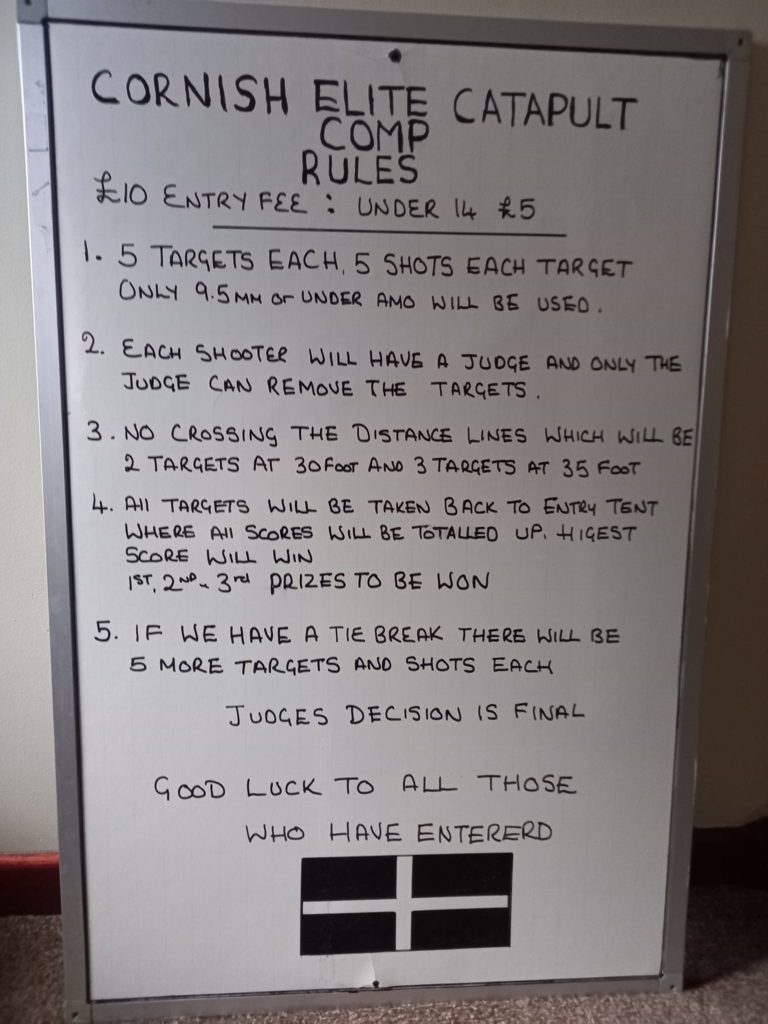 CORNISH ELITE CATAPULT
COMP
RULES
£10 ENTRY FEE : UNDER 14 £5
1. 5 TARGETS EACH, 5 SHOTS EACH TARGET
ONLY 9.5MM or UNDER AMO WILL BE USED.
2. EACH SHOOTER WILL HAVE A JUDGE AND ONLY THE
JUDGE CAN REMOVE THE TARGETS.
3. NO CROSSING THE DISTANCE LINES WHICH WILL BE
2 TARGETS AT 30 FOOT AND 3 TARGETS AT 35 FOOT
4. All TARGETS WILL BE TAKEN BACK TO ENTRY TENT
WHERE All SCORES WILL BE TOTALLED UP. HIGEST
SCORE WILL WIN
1ST, 2ND - 3rd PRIZES TO BE WON
5. IF WE HAVE A TIE BREAK THERE WILL BE
5 MORE TARGETS AND SHOTS EACH
JUDGES DECISION IS FINAL
GOOD LUCK TO ALL THOSE
WHO HAVE ENTERERD